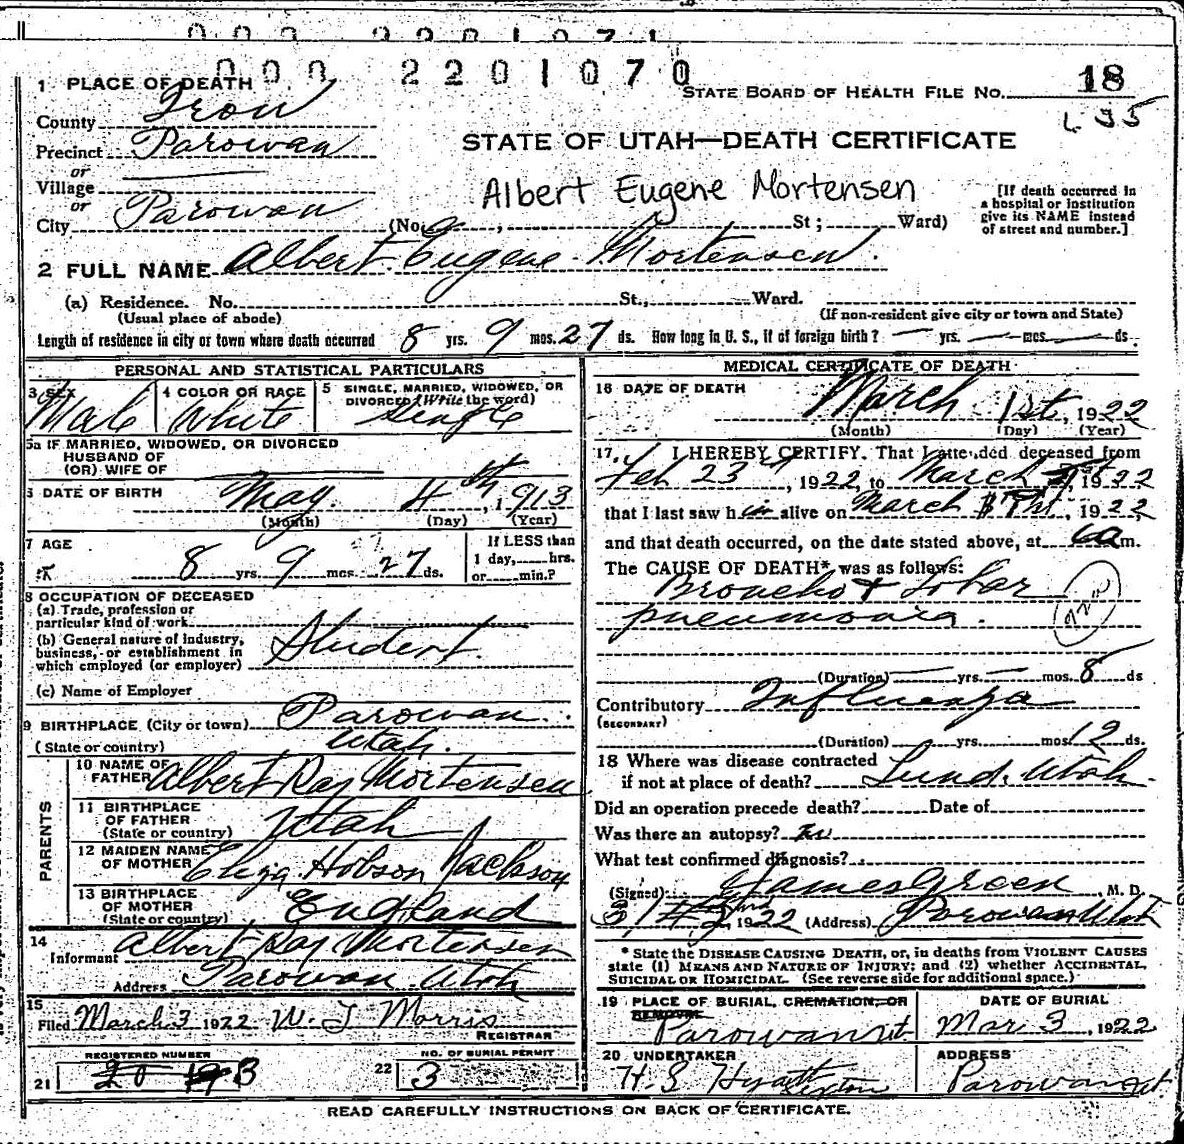 000 2201071
000 2201070
1 PLACE OF DEATH
STATE BOARD OF HEALTH FILE NO. 18
County Iron
Precinct Parowan
STATE OF UTAH—DEATH CERTIFICATE
or
Village
Albert Eugene Mortensen
[If death occurred in
a hospital or institution
give its NAME instead
of street and number.]
or
City Parowan (No. , St ; Ward)
2 FULL NAME Albert Eugene Mortensen.
(a) Residence. No. St., Ward.
(Usual place of abode) (If non-resident give city or town and State)
Length of residence in city or town where death occurred 8 yrs. 9 mos. 27 ds. How long in U. S., if of foreign birth? — yrs. — mos. — ds.
PERSONAL AND STATISTICAL PARTICULARS
3 SEX Male
4 COLOR OR RACE White
5 SINGLE, MARRIED, WIDOWED, OR
DIVORCED (Write the word) Single
5a IF MARRIED, WIDOWED, OR DIVORCED
HUSBAND OF
(OR) WIFE OF
6 DATE OF BIRTH May 4th, 1913
(Month) (Day) (Year)
7 AGE 8 yrs. 9 mos. 27 ds.
If LESS than
1 day, hrs.
or min.?
8 OCCUPATION OF DECEASED
(a) Trade, profession or
particular kind of work
(b) General nature of industry,
business, or establishment in
which employed (or employer) Student.
(c) Name of Employer
9 BIRTHPLACE (City or town) Parowan
(State or country) Utah.
PARENTS
10 NAME OF
FATHER Albert Ray Mortensen
11 BIRTHPLACE
OF FATHER
(State or country) Utah
12 MAIDEN NAME
OF MOTHER Eliza Hobson Jackson
13 BIRTHPLACE
OF MOTHER
(State or country) England
14
Informant Albert Ray Mortensen
Address Parowan Utah
15
Filed March 3 1922 W. J. Morris
REGISTRAR
REGISTERED NUMBER
21 20
NO. OF BURIAL PERMIT
22 3
MEDICAL CERTIFICATE OF DEATH
16 DATE OF DEATH March 1st, 1922
(Month) (Day) (Year)
17. I HEREBY CERTIFY. That I attended deceased from
Feb 23, 1922, to March 1st, 1922
that I last saw him alive on March, 1922,
and that death occurred, on the date stated above, at 6 a m.
The CAUSE OF DEATH* was as follows:
Broncho & Lobar
pneumonia.
(Duration) — yrs. — mos. 8 ds
Contributory Influenza
(SECONDARY)
(Duration) yrs. mos 12 ds.
18 Where was disease contracted
if not at place of death? Lund, Utah.
Did an operation precede death? Date of
Was there an autopsy? no
What test confirmed diagnosis?
(Signed) James Green, M. D.
1922 (Address) Parowan Utah
* State the DISEASE CAUSING DEATH, or, in deaths from VIOLENT CAUSES
state (1) MEANS AND NATURE OF INJURY; and (2) whether ACCIDENTAL,
SUICIDAL OR HOMICIDAL. (See reverse side for additional space.)
19 PLACE OF BURIAL, CREMATION, OR
REMOVAL Parowan Ut
DATE OF BURIAL
Mar 3, 1922
20 UNDERTAKER
H. S. Hyatt Sexton
ADDRESS
Parowan Ut
READ CAREFULLY INSTRUCTIONS ON BACK OF CERTIFICATE.